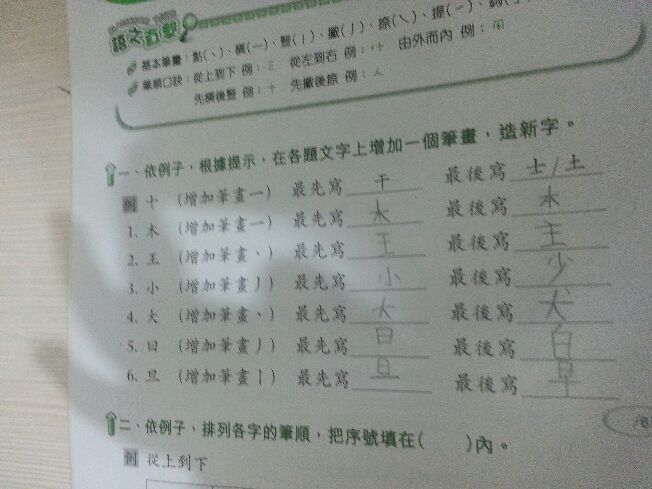 語文百擊
基本筆畫：點(丶)、橫(一)、豎(丨)、撇(丿)、捺(㇏)、提(㇀)、
筆順口訣：從上到下 例：三 從左到右 例：什 由外而內 例：月
先橫後豎 例：十 先撇後捺 例：人
一、依例子，根據提示，在各題文字上增加一個筆畫，造新字。
例 十 (增加筆畫一) 最先寫 干 最後寫 士/土
1. 木 (增加筆畫一) 最先寫 木 最後寫 本
2. 王 (增加筆畫丶) 最先寫 王 最後寫 主
3. 小 (增加筆畫丿) 最先寫 小 最後寫 少
4. 大 (增加筆畫丶) 最先寫 大 最後寫 犬
5. 日 (增加筆畫丿) 最先寫 日 最後寫 白
6. 旦 (增加筆畫丨) 最先寫 旦 最後寫 早
二、依例子，排列各字的筆順，把序號填在( )內。
例 從上到下